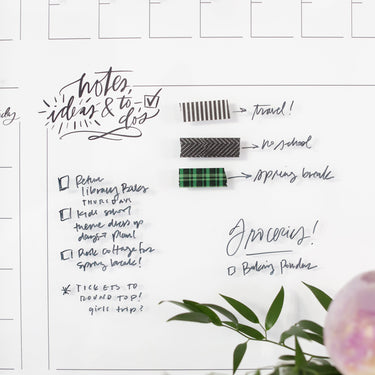 notes,
ideas & to
dos
travel!
no school
spring break
Return
library books
THURSDAYS
Kids school
theme dress up
days → plan!
Book cottage for
spring break!
* TICKETS TO
ROUND TOP!
girls trip?
Groceries!
Baking Powder